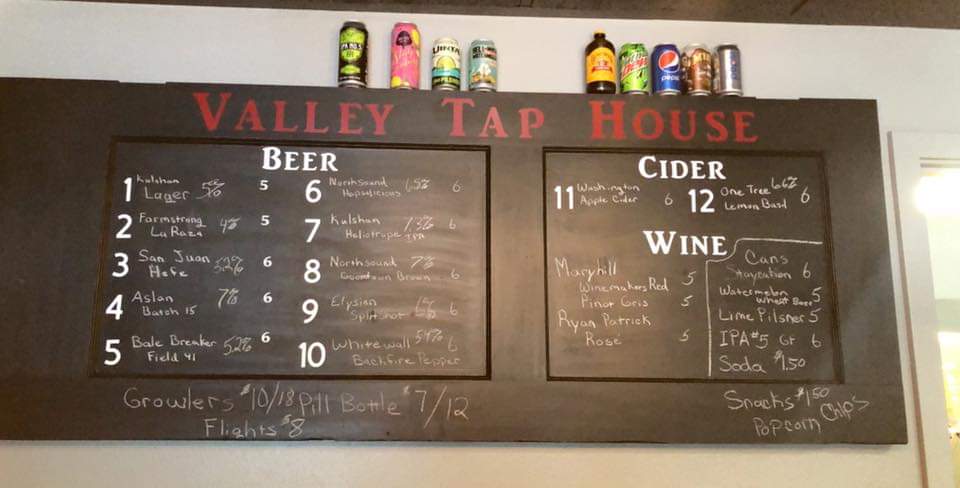 VALLEY TAP HOUSE
BEER
1 Kulshan
Lager 5% 5
2 Farmstrong
La Raza 4% 5
3 San Juan
Hefe 5.2% 6
4 Aslan
Batch 15 7% 6
5 Bale Breaker
Field 41 5.2% 6
6 Northsound
Hopsolicious 6.5% 6
7 Kulshan
Heliotrope IPA 7.3% 6
8 Northsound 7%
Brown 6
9 Elysian
Splitshot 6
10 Whitewall 5.4% 6
Backfire Pepper
CIDER
11 Washington
Apple Cider 6
12 One Tree 6.6%
Lemon Basil 6
WINE
Maryhill
Winemakers Red 5
Pinot Gris 5
Ryan Patrick
Rose 5
Cans
Staycation 6
Watermelon
Wheat Beer 5
Lime Pilsner 5
IPA #5 6
Soda $1.50
Growlers $10/18 Pill Bottle $7/12
Flights $8
Snacks $1.50
Popcorn Chip's
pepsi